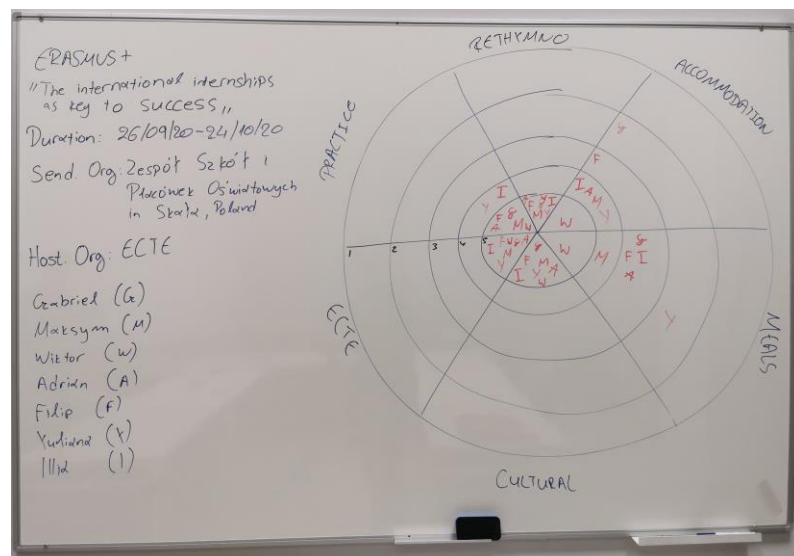 ERASMUS+
"The international internships
as key to success„
Duration: 26/09/20-24/10/20
Send. Org: Zespół Szkół i
Placówek Oświatowych
in Skała, Poland
Host. Org: ECTE
Gabriel (G)
Maksym (M)
Wiktor (W)
Adrian (A)
Filip (F)
Yuliana (Y)
Illia (I)
RETHYMNO
ACCOMMODATION
PRACTICE
1 2 3 4 5
ECTE
MEALS
CULTURAL